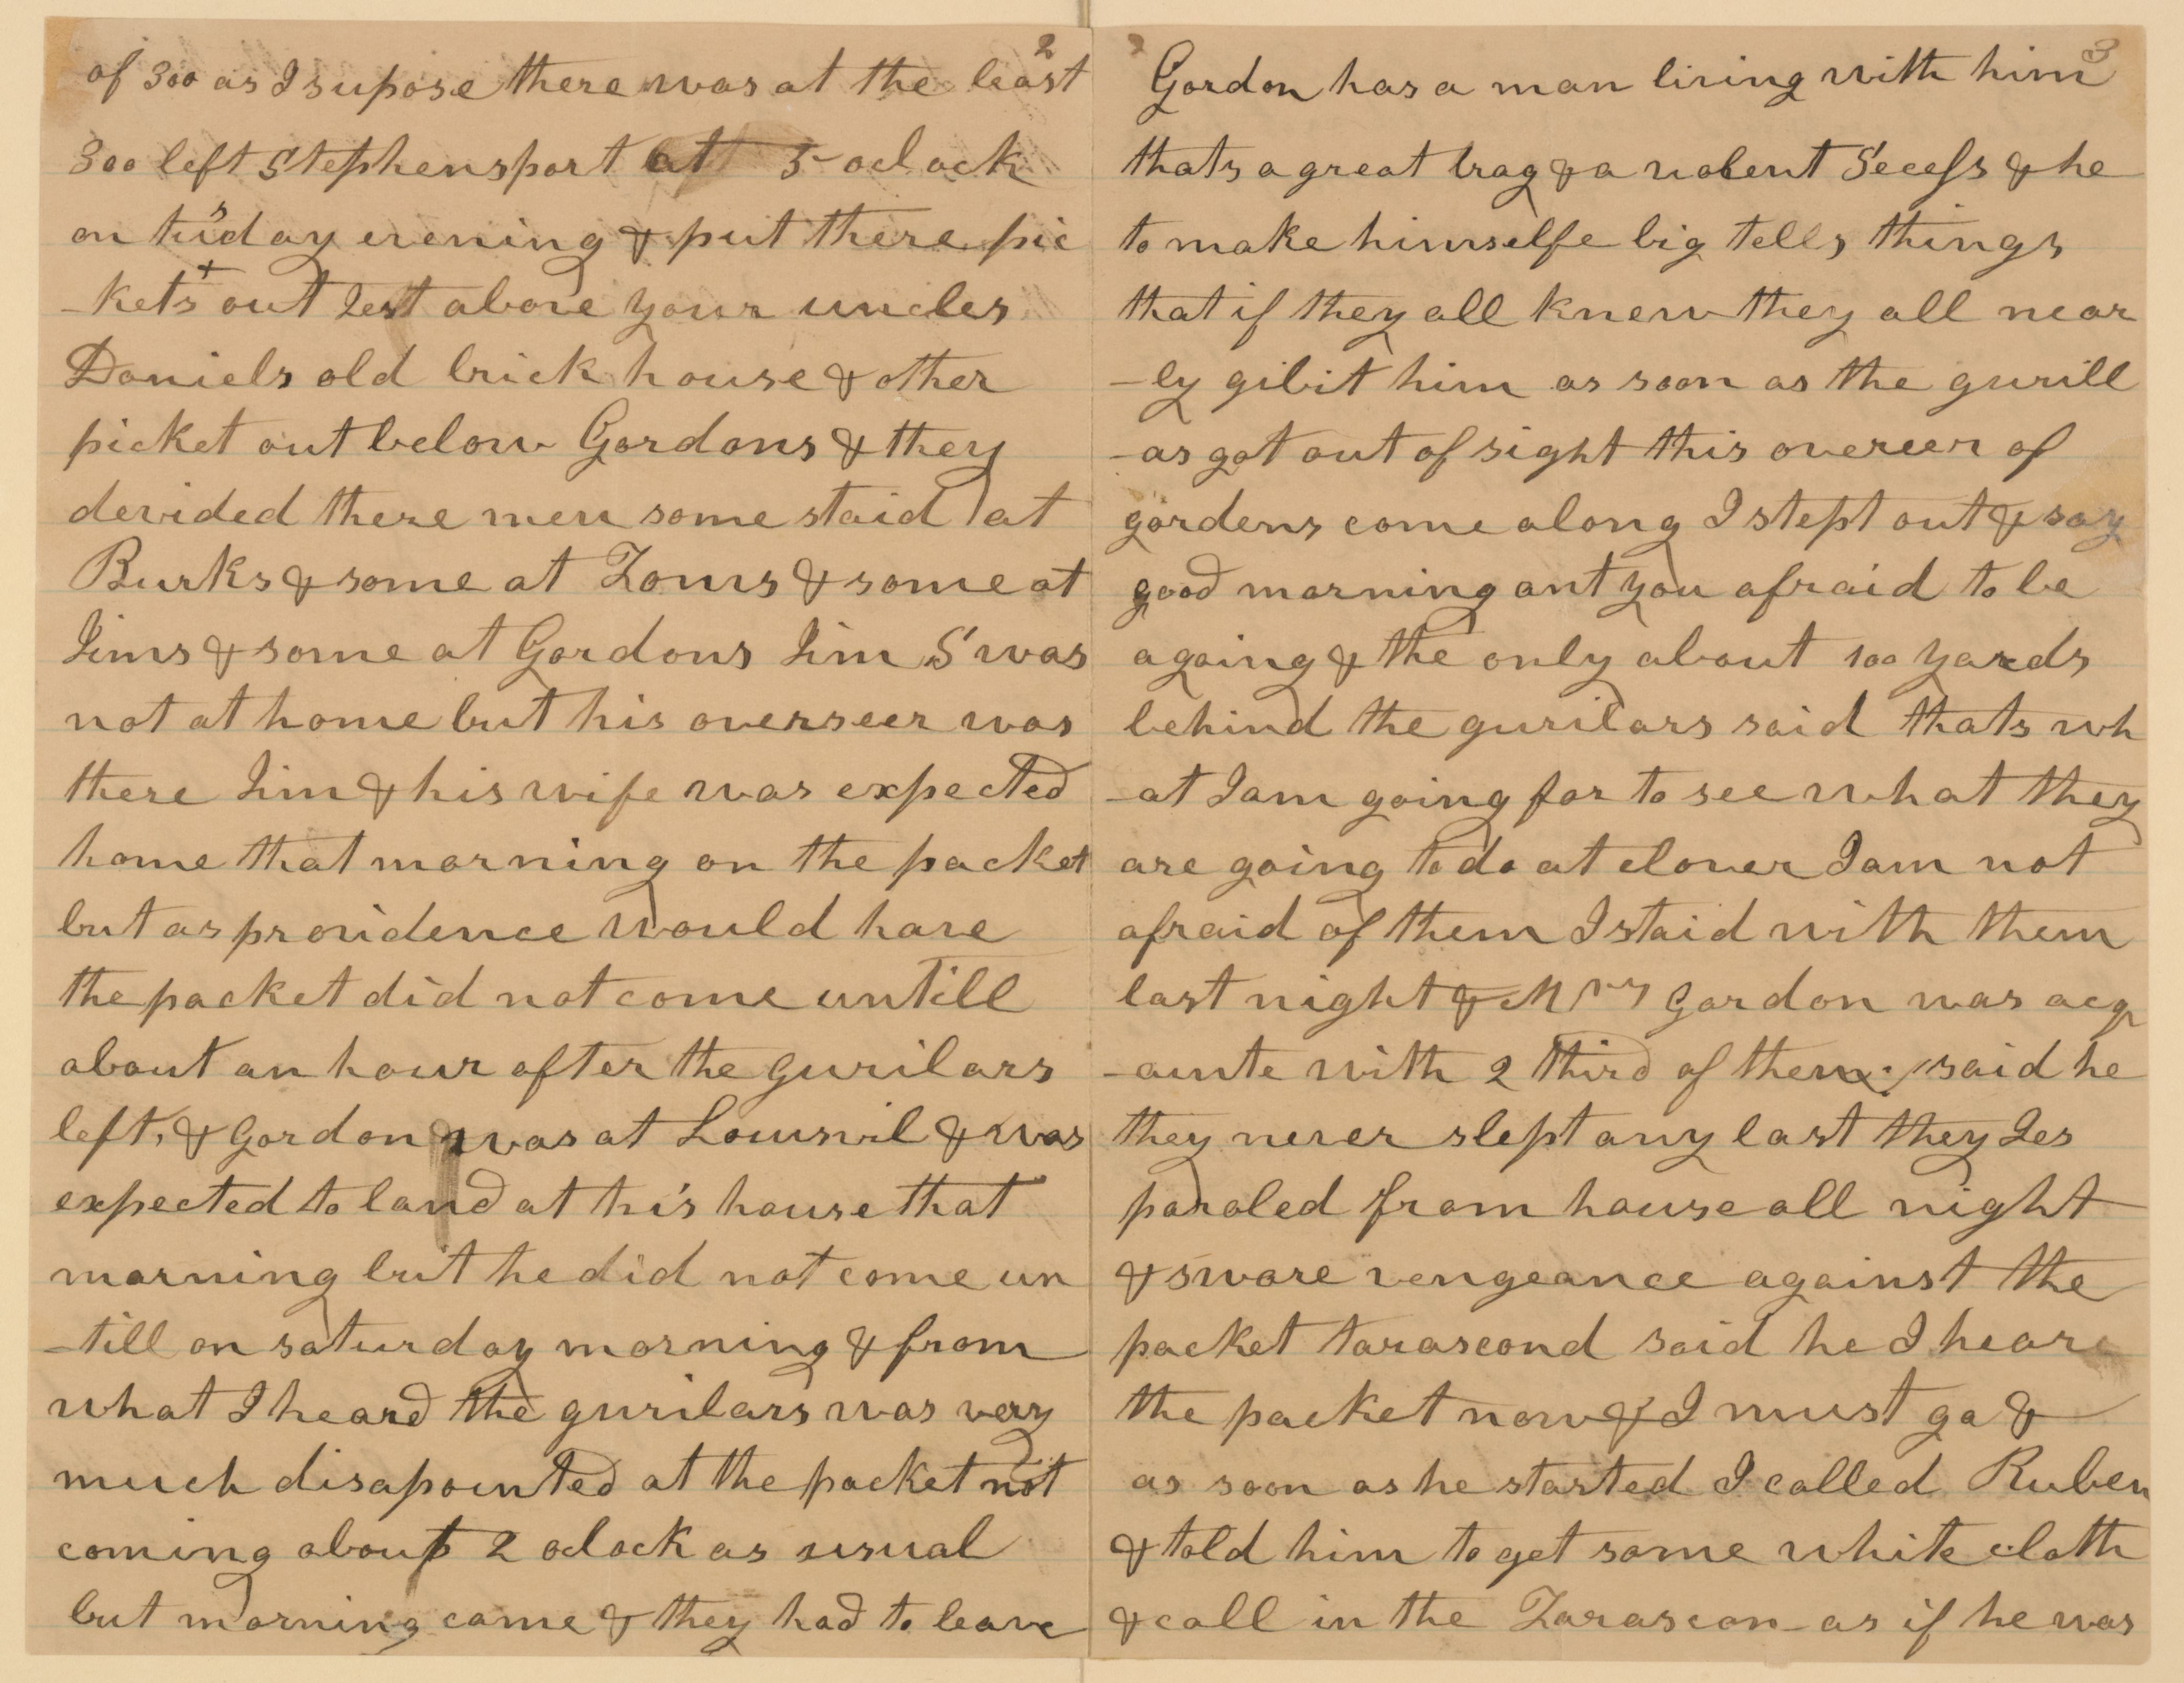 2
of 300 as I supose there was at the least
300 left Stephensport att 5 oclock
on tusday evening & put there pic
-kets out Jest above your uncles
Daniels old brick house & other
picket out below Gordons & they
devided there men some staid at
Burks & some at Toms & some at
Jims & some at Gordons Jim S was
not at home but his overseer was
there Jim & his wife was expected
home that morning on the packet
but as providence would have
the packet did not come untill
about an hour after the gurilars
left, & Gordon was at Louisvil & was
expected to land at his house that
morning but he did not come un
-till on saturday morning & from
what I heard the gurilars was very
much disapointed at the packet not
coming about 2 oclock as usual
but morning came & they had to leave
3
Gordon has a man living with him
thats a great brag & a violent Secess & he
to make himselfe big tells things
that if they all knew they all near
-ly gibit him as soon as the gurill
-as got out of sight this overeer of
gordens come along I stept out & say
good morning ant you afraid to be
agoing & the only about 100 yards
behind the gurilars said thats wh
-at I am going for to see what they
are going to do at clover I am not
afraid of them I staid with them
last night & Mrs Gordon was acq
-ainte with 2 third of them said he
they never slept any last they Jes
paroled from house all night
& swore vengeance against the
packet tarascond said he I hear
the packet now & I must go &
as soon as he started I called Ruben
& told him to get some white cloth
& call in the Tarascon as if he was